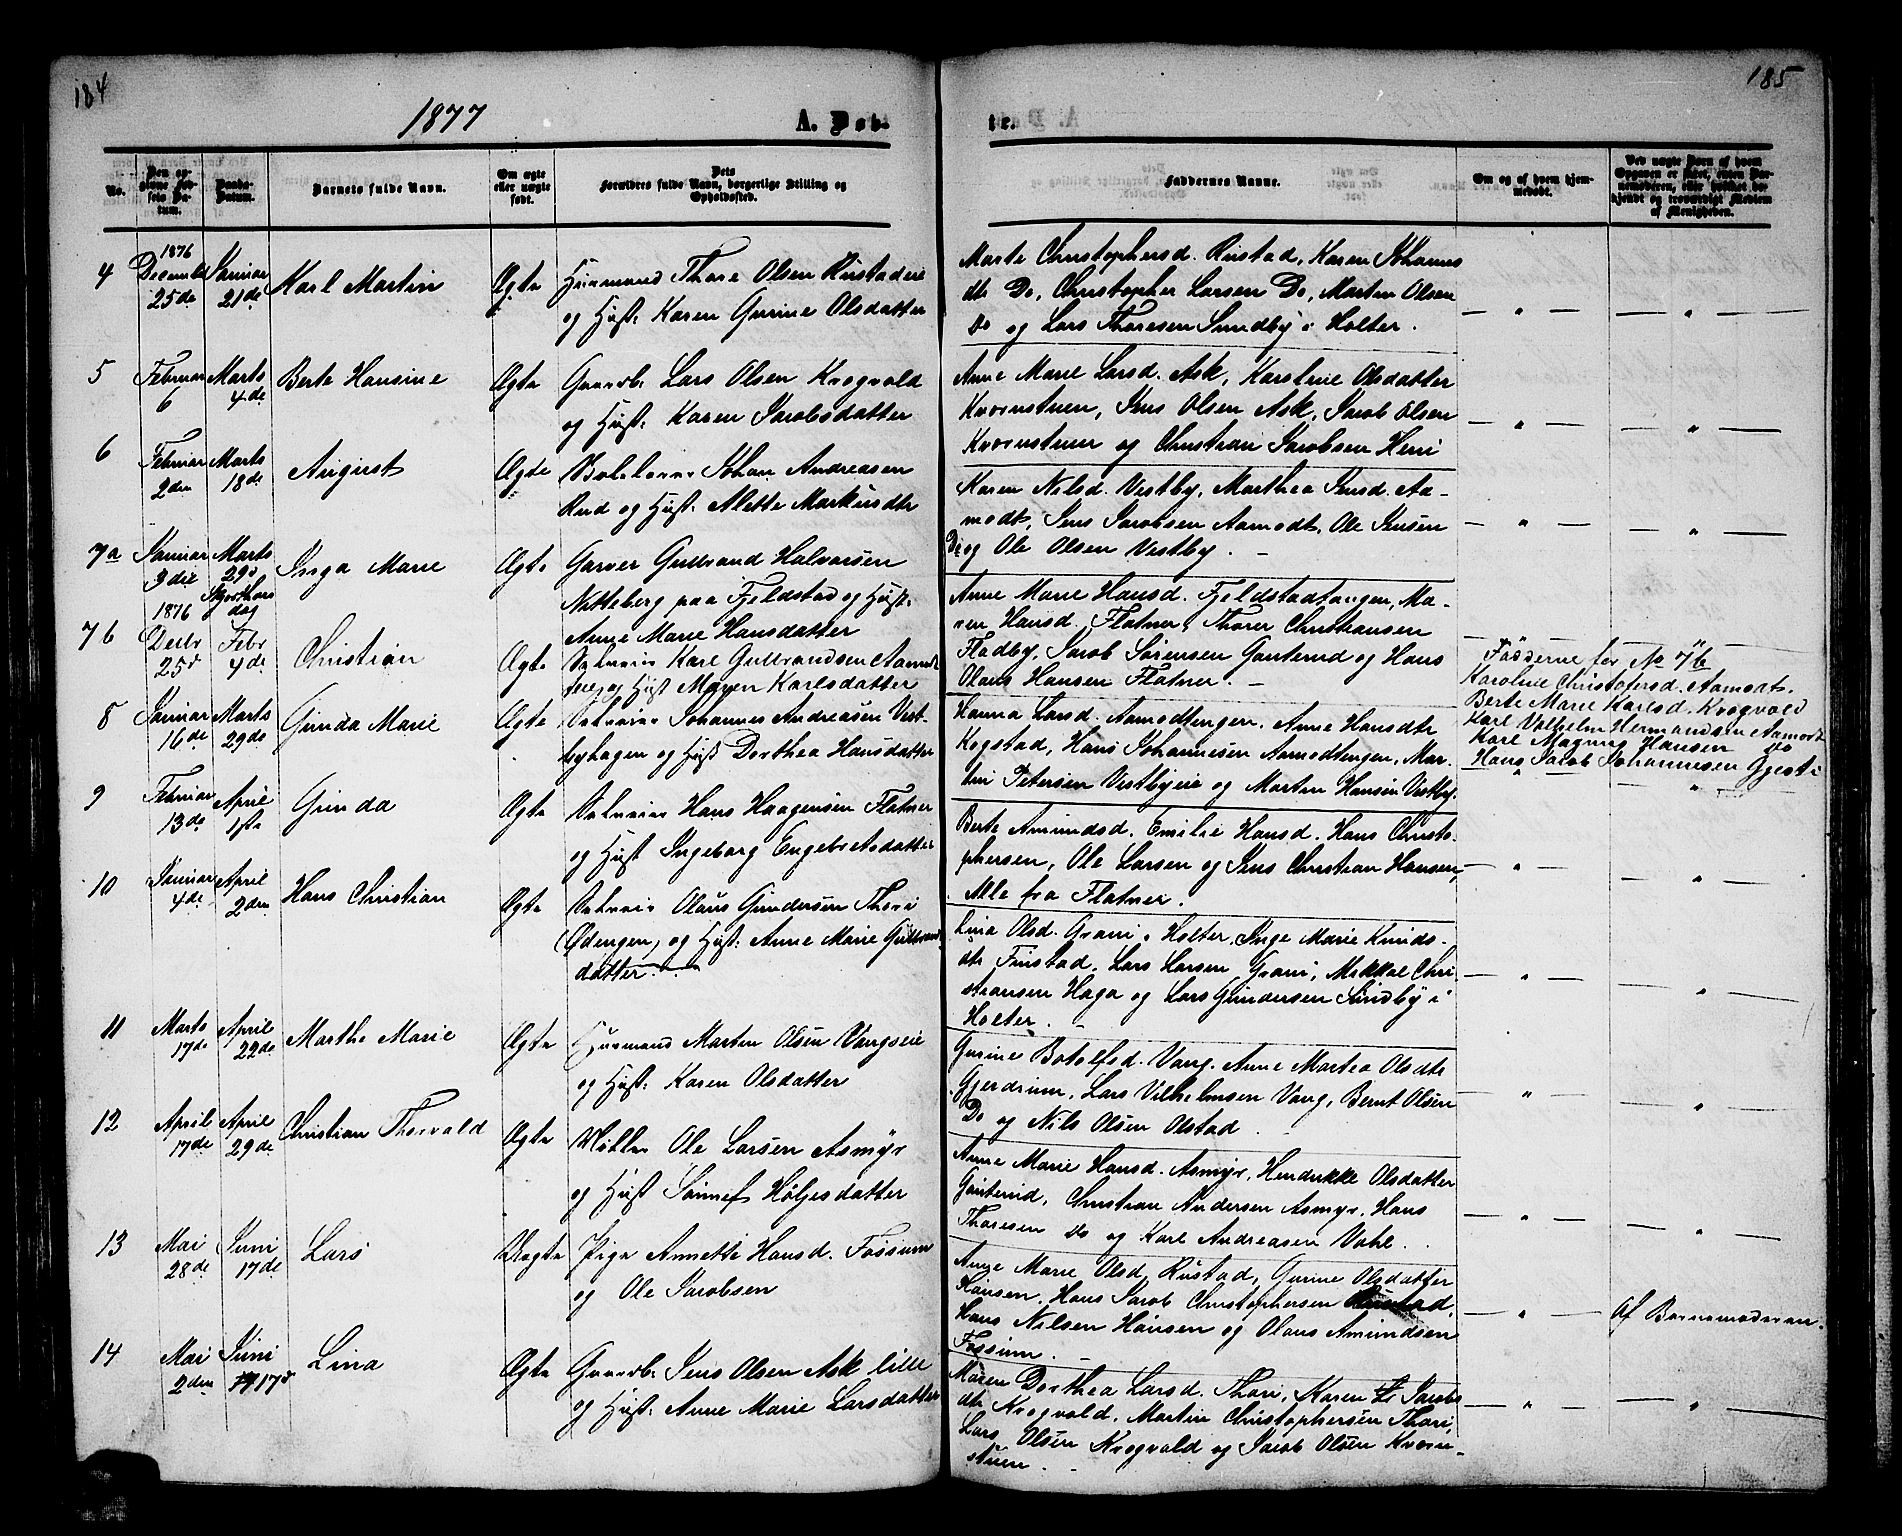 184
1877
A. Døb-
No.
Den op-
givne Fød-
sels Da-
tum.
Daabs-
Datum.
Barnets fulde Navn.
Om ægte
eller uægte
født.
Dets
Forældres fulde Navn, borgerlige Stilling og
Opholdssted.
4
1876
December
25de
Januar
21de
Karl Martin
Ægte
Huusmand Thore Olsen Rustadeie
og Hust: Karen Gurine Olsdatter
5
Februar
6
Marts
4de
Berte Hansine
Ægte
Gaardb. Lars Olsen Krogvold
og Hust: Karen Jacobsdatter
6
Februar
2den
Marts
18de
August
Ægte
Johan Andreasen
Rud og Hust: Alette Markusdtr
7a
Januar
3die
Marts
29d
Skjærthors
dag
Inga Marie
Ægte
Garver Gulbrand Halvorsen
Nitteberg paa Fjeldstad og Hust:
Anne Marie Hansdatter
7b
1876
Decbr
25d
Febr
4de
Christian
Ægte
Selveier Karl Gulbrandsen Aamodt
eie, og Hust Maren Karlsdatter
8
Januar
16de
Marts
29de
Gunda Marie
Ægte
Selveier Johannes Andreasen Vest-
byhagen og Hust Dorthea Hansdatter
9
Februar
13de
April
1ste
Gunda
Ægte
Selveier Hans Haagensen Flatner
og Hust Ingeborg Engebretsdatter
10
Januar
4de
April
2den
Hans Christian
Ægte
Selveier Olaus Gundersen Thori
(Ødengen) og Hust: Anne Marie Gulbrands
datter.
11
Marts
17de
April
22de
Marthe Marie
Ægte
Huusmand Marten Olsen Vangseie
og Hust: Karen Olsdatter
12
April
17de
April
29de
Christian Thorvald
Ægte
Møller Ole Larsen Asmyr
og Hust Sønnef Holgesdatter
13
Mai
28de
Juni
17de
Lars
Uægte
Pige Annette Hansd. Fossum
og Ole Jacobsen
14
Mai
2den
Juni
17d
Lina
Ægte
Gaardb. Jens Olsen Ask lille
og Hust: Anne Marie Larsdatter
185
te.
Faddernes Navne.
Om og af hvem hjem-
medøbt.
Ved uægte Børn af hvem
Opgaven er skeet, enten Bar-
nemoderen, eller hvilket be-
kjendt og troværdigt Medlem
af Menigheden.
Marte Christophersd. Rustad, Karen Johannes
dtr Do, Christopher Larsen Do, Marten Olsen
do og Lars Thoresen Sundby i Holter.
Anne Marie Larsd. Ask, Karoline Olsdatter
Kvernstuen, Jens Olsen Ask, Jacob Olsen
Kvernstuen og Christian Jacobsen Heni
Karen Nilsd. Vestby, Marthea Jensd. Aa-
modt, Jens Jacobsen Aamodt, Ole Jensen
Do og Ole Olsen Vestby.
Anne Marie Hansd. Fjeldstadtangen, Ma-
ren Hansd. Flatner, Thorer Christiansen
Fladby, Jacob Sørensen Gauterud og Hans
Olaus Hansen Flatner.
Fadderne for No 7b
Karoline Christofersd. Aamodt.
Berte Marie Karlsd. Krogvold
Karl Vilhelm Hermandsen Aamodt
Karl Magnus Hansen do
Hans Jacob Johannesen Gjesti
Hanna Larsd. Aamodtengen, Anne Hansdtr
Kogstad, Hans Johannesen Aamodtengen, Mar-
tin Petersen Vestbyeie og Morten Hansen Vestby.
Berte Amundsd. Emilie Hansd. Hans Christo-
phersen, Ole Larsen og Jens Christian Hansen,
Alle fra Flatner.
Lina Olsd. Grani i Holter, Inge Marie Knuds-
dtr Finstad, Lars Larsen Grani, Mikkel Chri-
stiansen Haga og Lars Gundersen Sundby i
Holter.
Gurine Botolfsd. Vang. Anne Martea Olsdtr
Gjerdrum, Lars Vilhelmsen Vang, Bernt Olsen
Do og Nils Olsen Olstad.
Anne Marie Hansd. Asmyr, Hendrikke Olsdatter
Gauterud, Christian Andersen Asmyr, Hans
Thoresen do og Karl Andreasen Vahl.
Anne Marie Olsd. Rustad, Gurine Olsdatter
Hansen, Hans Jacob Christophersen Rustad,
Hans Nilsen Hansen og Olaus Amundsen
Fossum.
Af Barnemoderen.
Maren Dorthea Larsd. Thori, Karen Jacobs
dtr Krogvold, Martin Christophersen Thori,
Lars Olsen Krogvold og Jacob Olsen Kvern-
stuen.